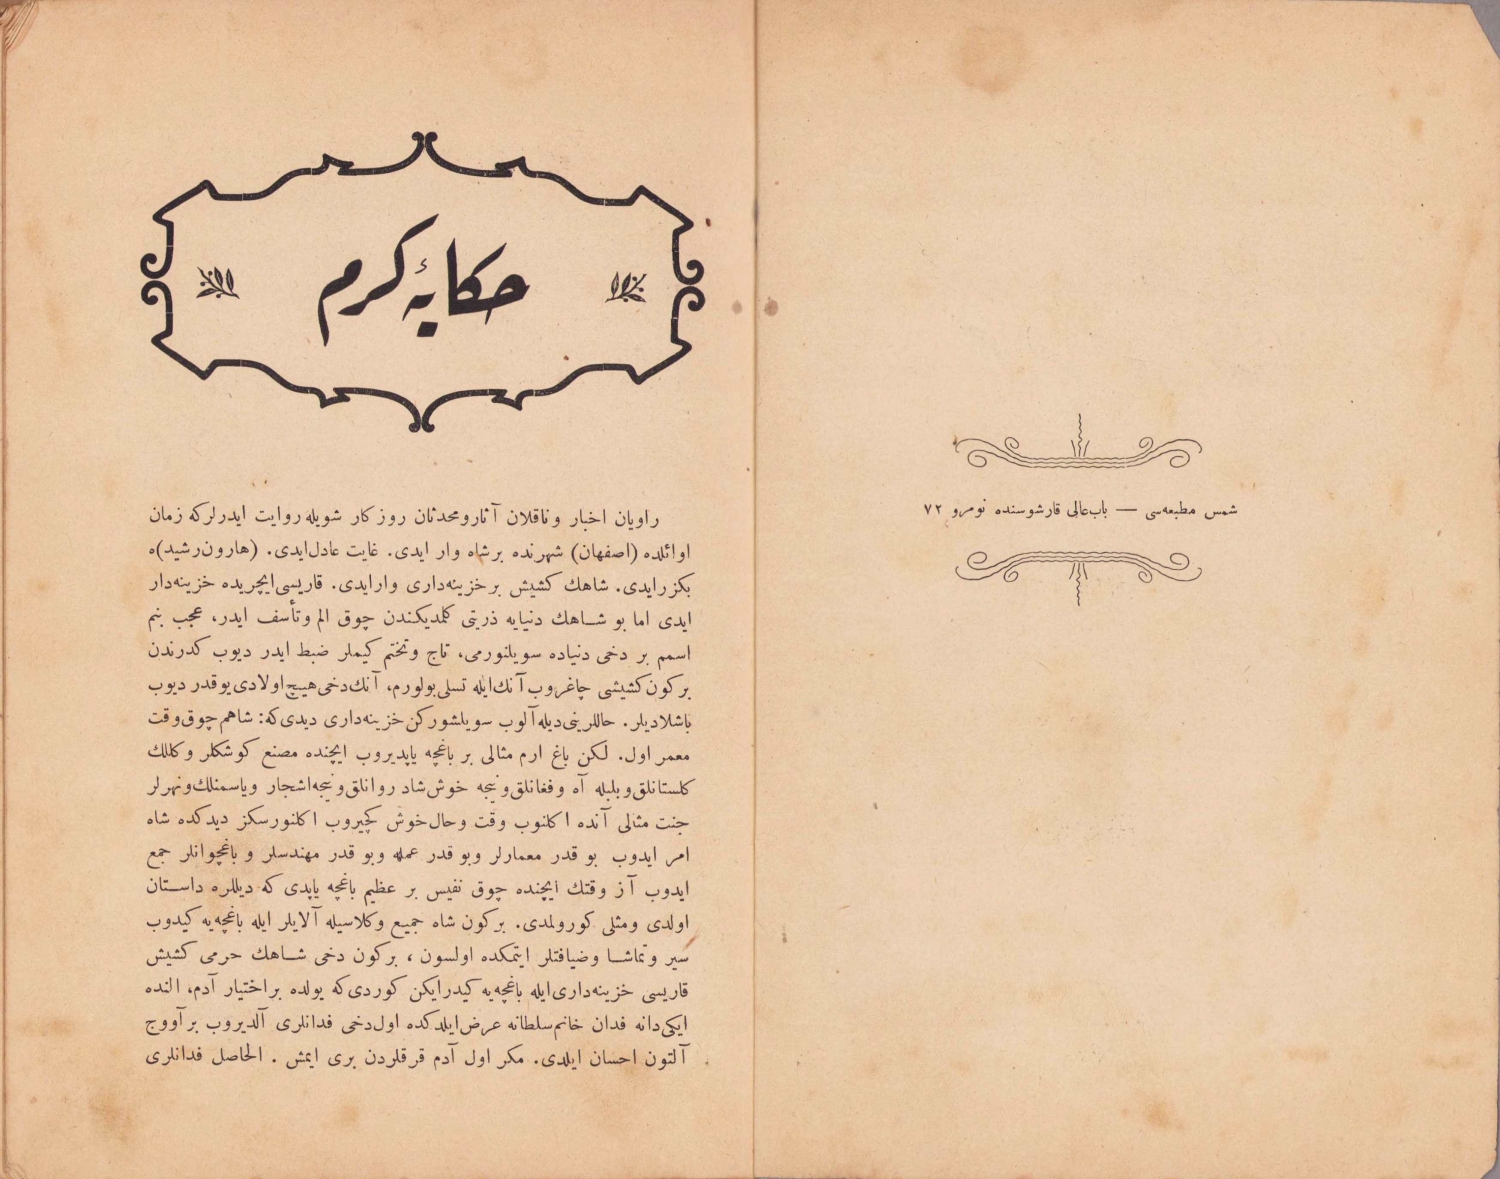 شمس مطبعه‌سی — باب‌عالی قارشوسنده نومرو ۷۲
حکایهٔ کرم
راویان اخبار و ناقلان آثار و محدثان روزکار شویله روایت ایدرلرکه زمان
اوائلده (اصفهان) شهرنده برشاه وار ایدی. غایت عادل‌ایدی. (هارون‌رشید)ه
بکزرایدی. شاهك کشیش بر خزینه‌داری وارایدی. قاریسی‌ایچریده خزینه‌دار
ایدی اما بو شـاهك دنیایه ذریتی کلمدیکندن چوق الم وتأسف ایدر، عجب بنم
اسمم بر دخی دنیاده سویلنورمی، تاج وتختم کیملر ضبط ایدر دیوب کدرندن
برکون‌کشیشی چاغروب آنك‌ایله تسلی‌بولورم، آنك‌دخی‌هیچ‌اولادی‌یوقدر دیوب
باشلادیلر. حاللرینی‌دیله‌آلوب سویلشورکن‌خزینه‌داری دیدی‌که: شاهم چوق‌وقت
معمر اول. لکن باغ ارم مثالی بر باغچه یاپدیروب ایچنده مصنع کوشکلر وکللك
کلستانلق‌وبلبله آه وفغانلق‌ونیجه خوش‌شاد روانلق‌ونیجه‌اشجار ویاسمنلك‌ونهرلر
جنت مثالی آنده اکلنوب وقت وحال‌خوش کچیروب اکلنورسکز دیدکده شاه
امر ایدوب بو قدر معمارلر وبو قدر عمله وبو قدر مهندسلر و باغچوانلر جمع
ایدوب آز وقتك ایچنده چوق نفیس بر عظیم باغچه یاپدی که دیللره داسـتان
اولدی ومثلی کورولمدی. برکون شاه جمیع وکلاسیله آلایلر ایله باغچه‌یه کیدوب
سیر وتماشـا وضیافتلر ایتمکده اولسون ، برکون دخی شـاهك حرمی کشیش
قاریسی خزینه‌داری‌ایله باغچه‌یه کیدرایکن کوردی‌که یولده براختیار آدم، النده
ایکی‌دانه فدان خانم‌سلطانه عرض‌ایلدکده اول‌دخی فدانلری آلدیروب برآووج
آلتون احسان ایلدی. مکر اول آدم قرقلردن بری ایمش . الحاصل فدانلری